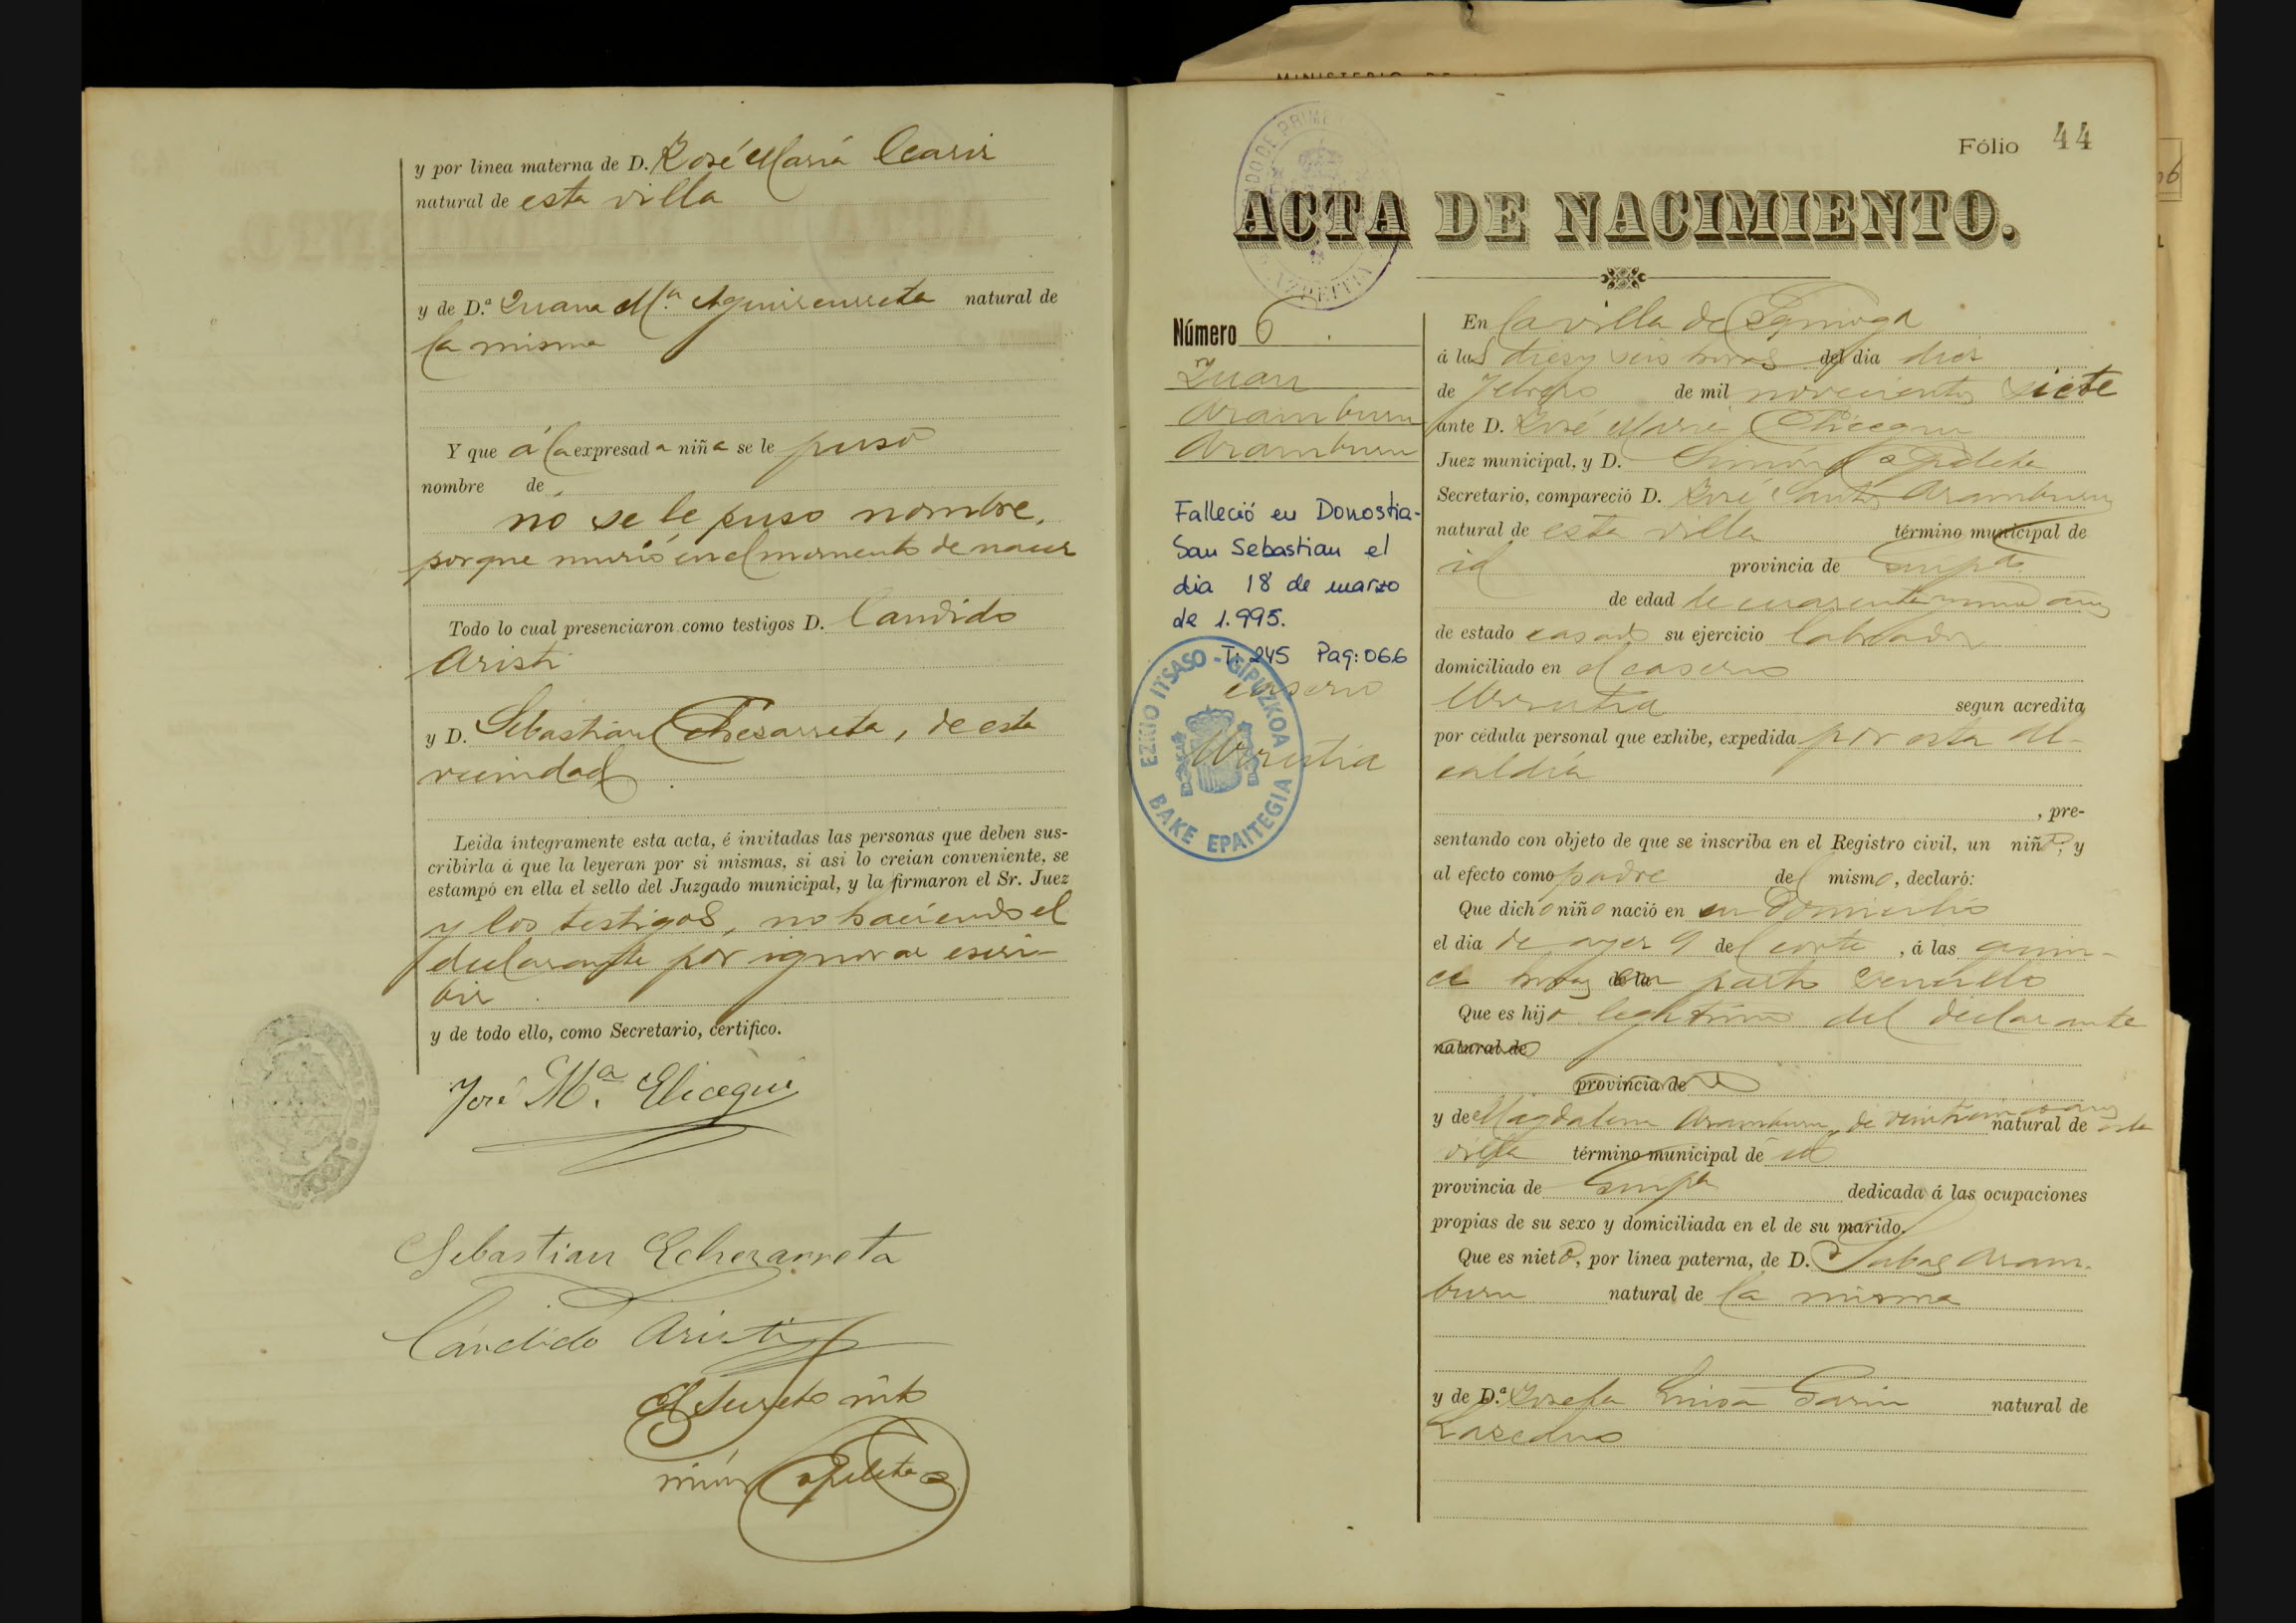 y por línea materna de D. José María
natural de esta villa
y de D.ª Juana M.ª natural de
la misma
Y que á la expresada niña se le puso
nombre de
no se le puso nombre,
porque murió en el momento de nacer
Todo lo cual presenciaron como testigos D. Candido
Aristi
y D. Sebastian Echezarreta, de esta
vecindad
Leida íntegramente esta acta, é invitadas las personas que deben sus-
cribirla á que la leyeran por si mismas, si asi lo creian conveniente, se
estampó en ella el sello del Juzgado municipal, y la firmaron el Sr. Juez
y los testigos, no haciendo el
declarante por ignorar escri-
bir
y de todo ello, como Secretario, certifico.
José M.ª Elicegui
Sebastian Echezarreta
Cándido Aristi
El
Fólio 44
ACTA DE NACIMIENTO.
Número 6
Juan
Aramburu
Aramburu
Falleció en Donostia-
San Sebastian el
dia 18 de marzo
de 1.995.
T: 245 Pag: 066
caserio
Urrutia
EZKIO ITSASO - GIPUZKOA
BAKE EPAITEGIA
En la villa de Ezquioga
á las diez y seis horas del dia diez
de Febrero de mil novecientos siete
ante D. José María Elicegui
Juez municipal, y D. Simón
Secretario, compareció D. José Santos Aramburu
natural de esta villa término municipal de
id provincia de
de edad de cuarenta años
de estado casado su ejercicio labrador
domiciliado en el caserio
Urrutia segun acredita
por cédula personal que exhibe, expedida por esta al-
caldía
, pre-
sentando con objeto de que se inscriba en el Registro civil, un niño, y
al efecto como padre del mismo, declaró:
Que dicho niño nació en su domicilio
el dia de ayer 9 del corte, á las quin-
ce horas en parto sencillo
Que es hijo legítimo del declarante
natural de
provincia de
y de Magdalena Aramburu, de natural de esta
villa término municipal de id
provincia de dedicada á las ocupaciones
propias de su sexo y domiciliada en el de su marido.
Que es nieto, por línea paterna, de D. Sabas Aram-
buru natural de la misma
y de D.ª Josefa Luisa Garin natural de
Lazcano